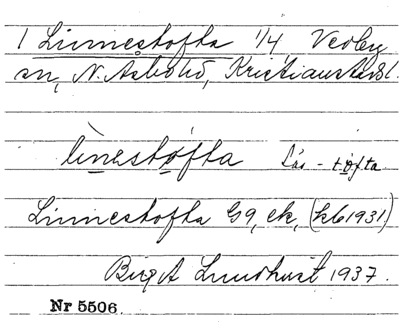 1 Linnestofta 1/4, Verby
sn, N. Åsbo hd, Kristianstads l.
linestofta Läs - tofta
Linnestofta G9, ek, (kb 1931)
Birgit Lundkvist 1937.
Nr 5506